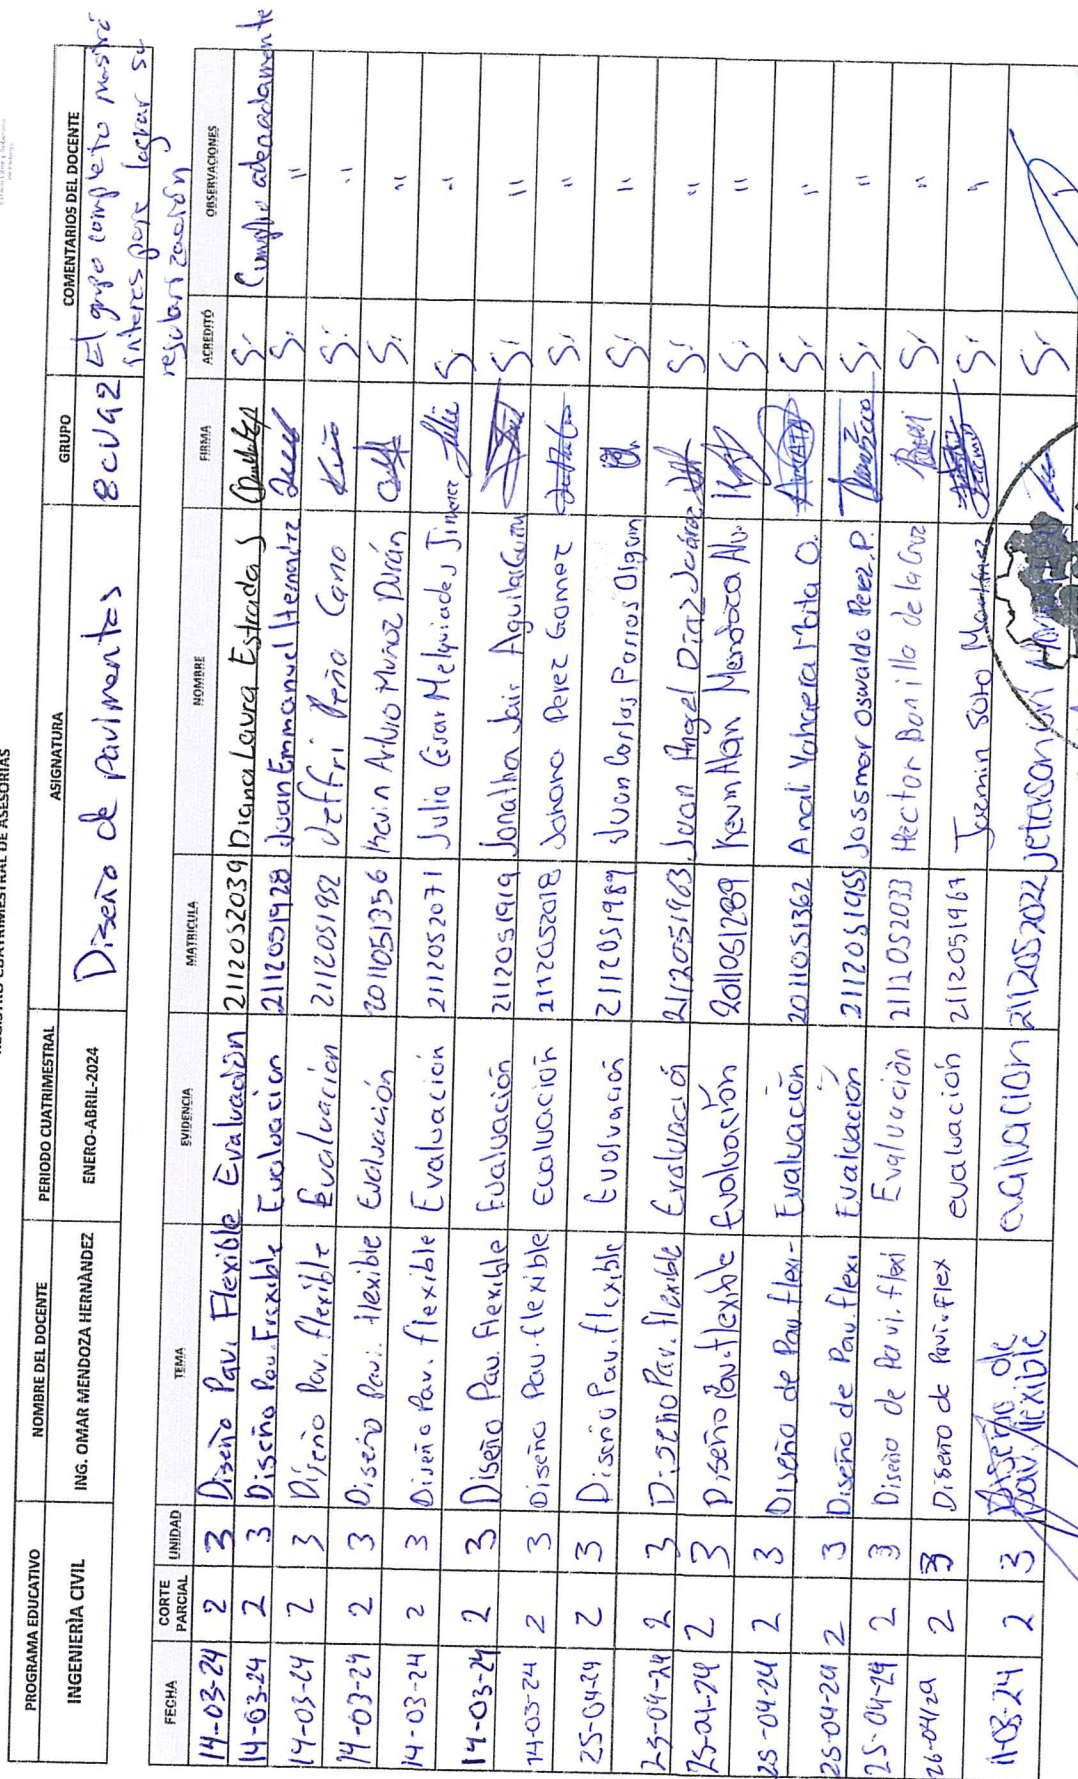 REGISTRO CUATRIMESTRAL DE ASESORIAS
PROGRAMA EDUCATIVO NOMBRE DEL DOCENTE PERIODO CUATRIMESTRAL ASIGNATURA GRUPO COMENTARIOS DEL DOCENTE
INGENIERÌA CIVIL ING. OMAR MENDOZA HERNÀNDEZ ENERO-ABRIL-2024 Diseño de pavimentos 8CIVG2 El grupo completo mostró
interes para lograr su
regularización
FECHA CORTE PARCIAL UNIDAD TEMA EVIDENCIA MATRICULA NOMBRE FIRMA ACREDITÓ OBSERVACIONES
14-03-24 2 3 Diseño Pav. Flexible Evaluación 2112052039 Diana Laura Estrada S Si Cumplio adecuadamente
14-03-24 2 3 Diseño Pav. Flexible Evaluacion 2112051928 Juan Emmanuel Hernandez Si "
14-03-24 2 3 Diseño Pav. flexible Evaluacion 2112051952 Jeffri Peña Cano Si "
14-03-24 2 3 Diseño Pavi. flexible Evaluación 2011051356 Kevin Arturo Muñoz Durán Si "
14-03-24 2 3 Diseño Pav. flexible Evaluación 2112052071 Julio Cesar Melquiades Jimenez Si "
14-03-24 2 3 Diseño Pav. flexible Evaluación 2112051919 Jonathan Jair Aguilar Si "
14-03-24 2 3 Diseño Pav. flexible Evaluación 2112052018 Johana Perez Gomez Si "
25-04-24 2 3 Diseño Pav. flexible Evaluación 2112051989 Juan Carlos Porras Olguin Si "
25-04-24 2 3 Diseño Pav. flexible Evaluación 2112051963 Juan Angel Díaz Juárez Si "
25-04-24 2 3 Diseño Pav. flexible Evaluación 2011051289 Kevin Alan Mendoza Alv. Si "
25-04-24 2 3 Diseño de Pav. flexi- Evaluación 2011051362 Anali Si "
25-04-24 2 3 Diseño de Pav. flexi Evaluación 2112051955 Jossmar Oswaldo Perez. P. Si "
25-04-24 2 3 Diseño de Pavi. flexi Evaluación 2112052033 Héctor Bonilla de la Cruz Si "
26-04/24 2 3 Diseño de Pavi. Flex evaluación 2112051967 Jazmin Soto Martínez Si "
11-03-24 2 3 Diseño de pav. flexible evaluacion 2112052022 Si "